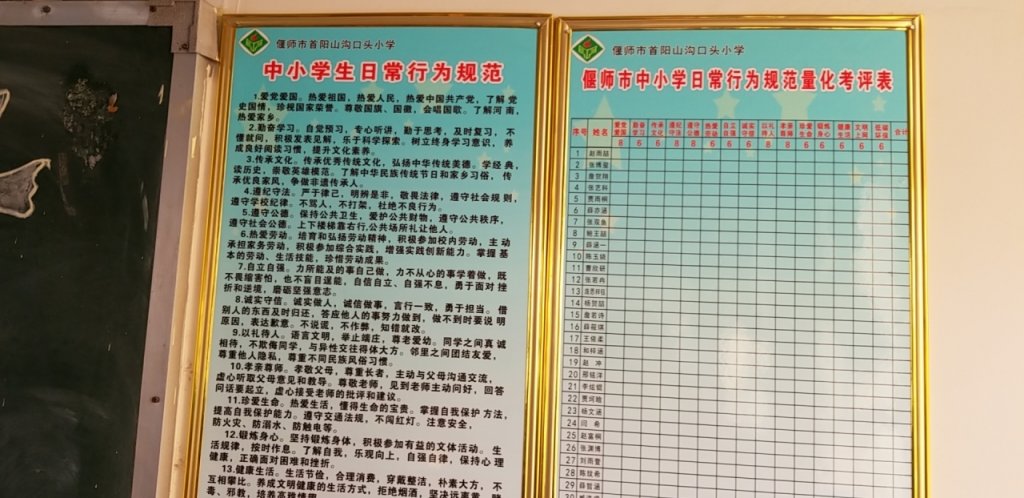 偃师市首阳山沟口头小学
中小学生日常行为规范
1.爱党爱国。热爱祖国，热爱人民，热爱中国共产党，了解党
史国情，珍视国家荣誉。尊敬国旗、国徽，会唱国歌。了解河南，
热爱家乡。
2.勤奋学习。自觉预习，专心听讲，勤于思考，及时复习，不
懂就问，积极发表见解，乐于科学探索。树立终身学习意识，养
成良好阅读习惯，提升文化素养。
3.传承文化。传承优秀传统文化，弘扬中华传统美德。学经典，
读历史，崇敬英雄模范。了解中华民族传统节日和家乡习俗，传
承优良家风，争做非遗传承人。
4.遵纪守法。严于律己，明辨是非，敬畏法律，遵守社会规则，
遵守学校纪律。不骂人，不打架，杜绝不良行为。
5.遵守公德。保持公共卫生，爱护公共财物，遵守公共秩序，
遵守社会公德。上下楼梯靠右行,公共场所礼让他人。
6.热爱劳动。培育和弘扬劳动精神，积极参加校内劳动，主动
承担家务劳动，积极参加综合实践，增强实践创新能力。掌握基
本的劳动、生活技能，珍惜劳动成果。
7.自立自强。力所能及的事自己做，力不从心的事学着做，既
不畏缩害怕，也不盲目逞能，自信自立、自强不息，勇于面对挫
折和逆境，磨砺坚强意志。
8.诚实守信。诚实做人，诚信做事，言行一致，勇于担当。借
别人的东西及时归还，答应他人的事努力做到，做不到时要说明
原因，表达歉意。不说谎，不作弊，知错就改。
9.以礼待人。语言文明，举止端庄，尊老爱幼。同学之间真诚
相待，不欺侮同学，与异性交往得体大方。邻里之间团结友爱，
尊重他人隐私，尊重不同民族风俗习惯。
10.孝亲尊师。孝敬父母，尊重长者，主动与父母沟通交流，
虚心听取父母意见和教导。尊敬老师，见到老师主动问好，回答
问话要起立，虚心接受老师的批评和建议。
11.珍爱生命。热爱生活，懂得生命的宝贵。掌握自我保护方法，
提高自我保护能力。遵守交通法规，不闯红灯。注意安全，
防火灾、防溺水、防触电等。
12.锻炼身心。坚持锻炼身体，积极参加有益的文体活动。生
活规律，按时作息。了解自我，乐观向上，自强自律，保持心理
健康，正确面对困难和挫折。
13.健康生活。生活节俭，合理消费，穿戴整洁，朴素大方，不
互相攀比。养成文明健康的生活方式，拒绝烟酒，坚决远离黄、赌
毒、邪教，培养高雅情趣
偃师市首阳山沟口头小学
偃师市中小学日常行为规范量化考评表
序号 姓名 爱党爱国 勤奋学习 传承文化 遵纪守法 遵守公德 热爱劳动 自立自强 诚实守信 以礼待人 孝亲尊师 珍爱生命 锻炼身心 健康生活 文明上网 低碳环保 合计
8 6 6 8 8 6 6 6 8 8 6 6 6 6 6
1 赵雨喆
2 张博玺
3 詹贺翔
4 张艺科
5 贾雨桐
6 薛亦涵
7 张双鱼
8 鲍王喆
9 薛涵一
10 陈玉娆
11 曹欣研
12 张若冉
13
14 杨贺喆
15 詹若诗
16 薛莜琪
17 王依柔
18 和梓涵
19 赵冲
20 邢铭洋
21 李炫锟
22 贾珂晗
23 杨文涵
24 闫希
25 赵富桐
26 张渊博
27 刘雨萱
28 陈纹希
29 薛哲涵
30